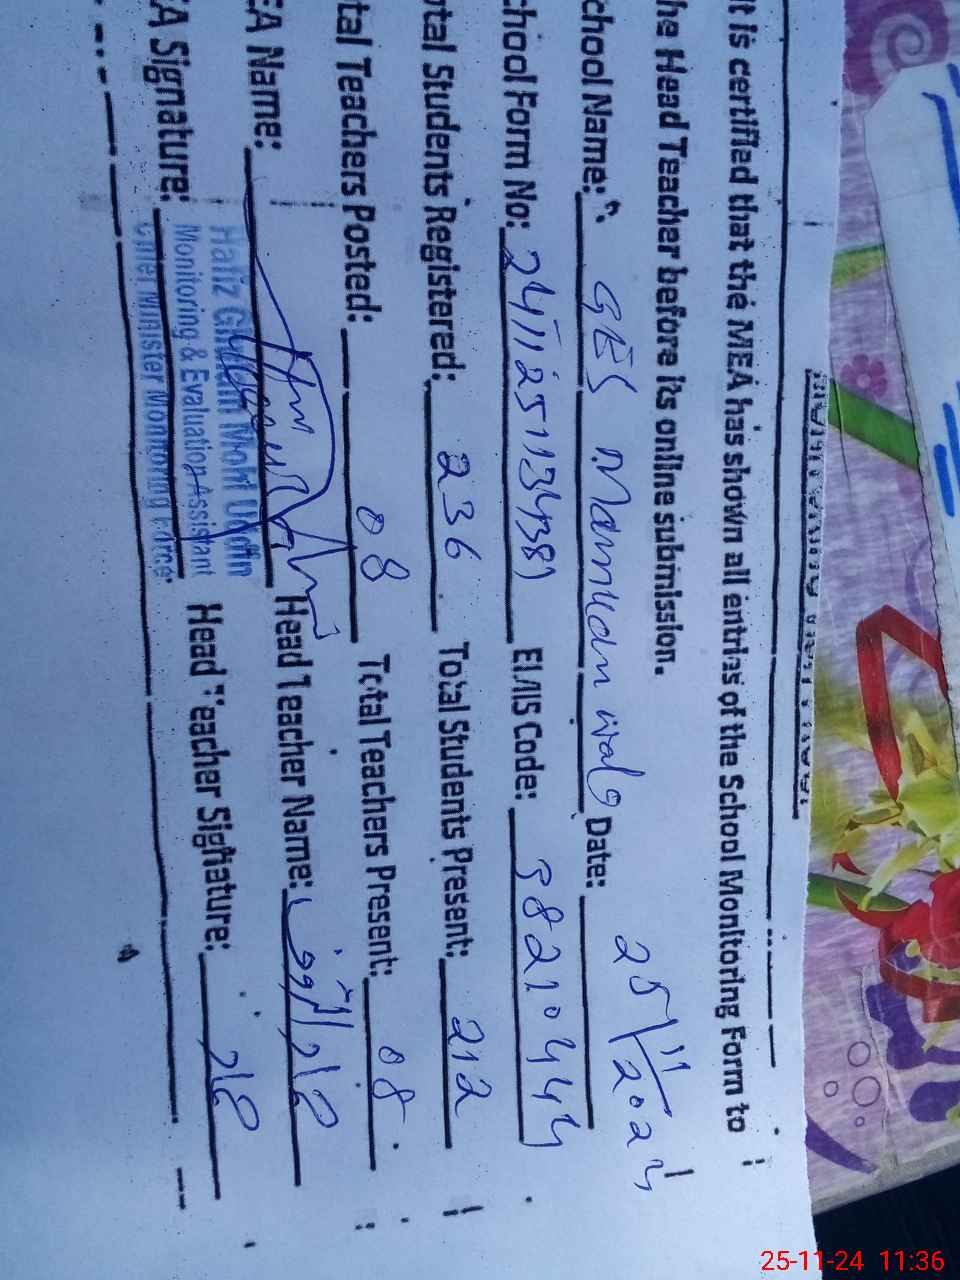 It is certified that the MEA has shown all entries of the School Monitoring Form to
he Head Teacher before its online submission.
chool Name: GES Mamuan wala Date: 25/11/2024
chool Form No: EMIS Code: 38210444
otal Students Registered: 236 Total Students Present: 212
tal Teachers Posted: 08 Total Teachers Present: 08
EA Name: Head Teacher Name:
Hafiz Ghulam Mohi Uddin
EA Signature: Head Teacher Signature:
Monitoring & Evaluation Assistant
Chief Minister Monitoring Force
25-11-24 11:36